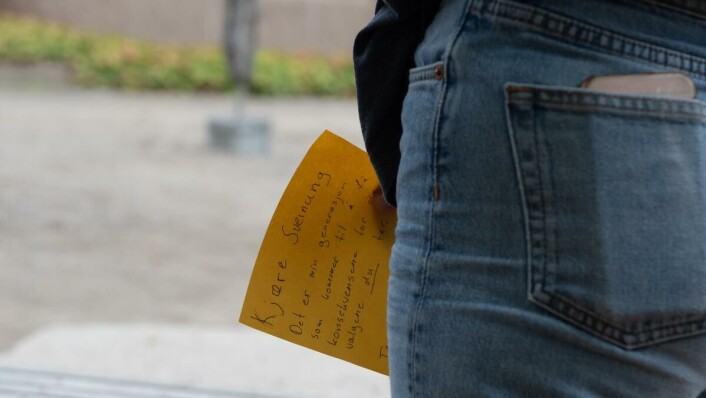 Kjære Sveinung
Det er min generasjon
som kommer til å
konsekvensene for
valgene du